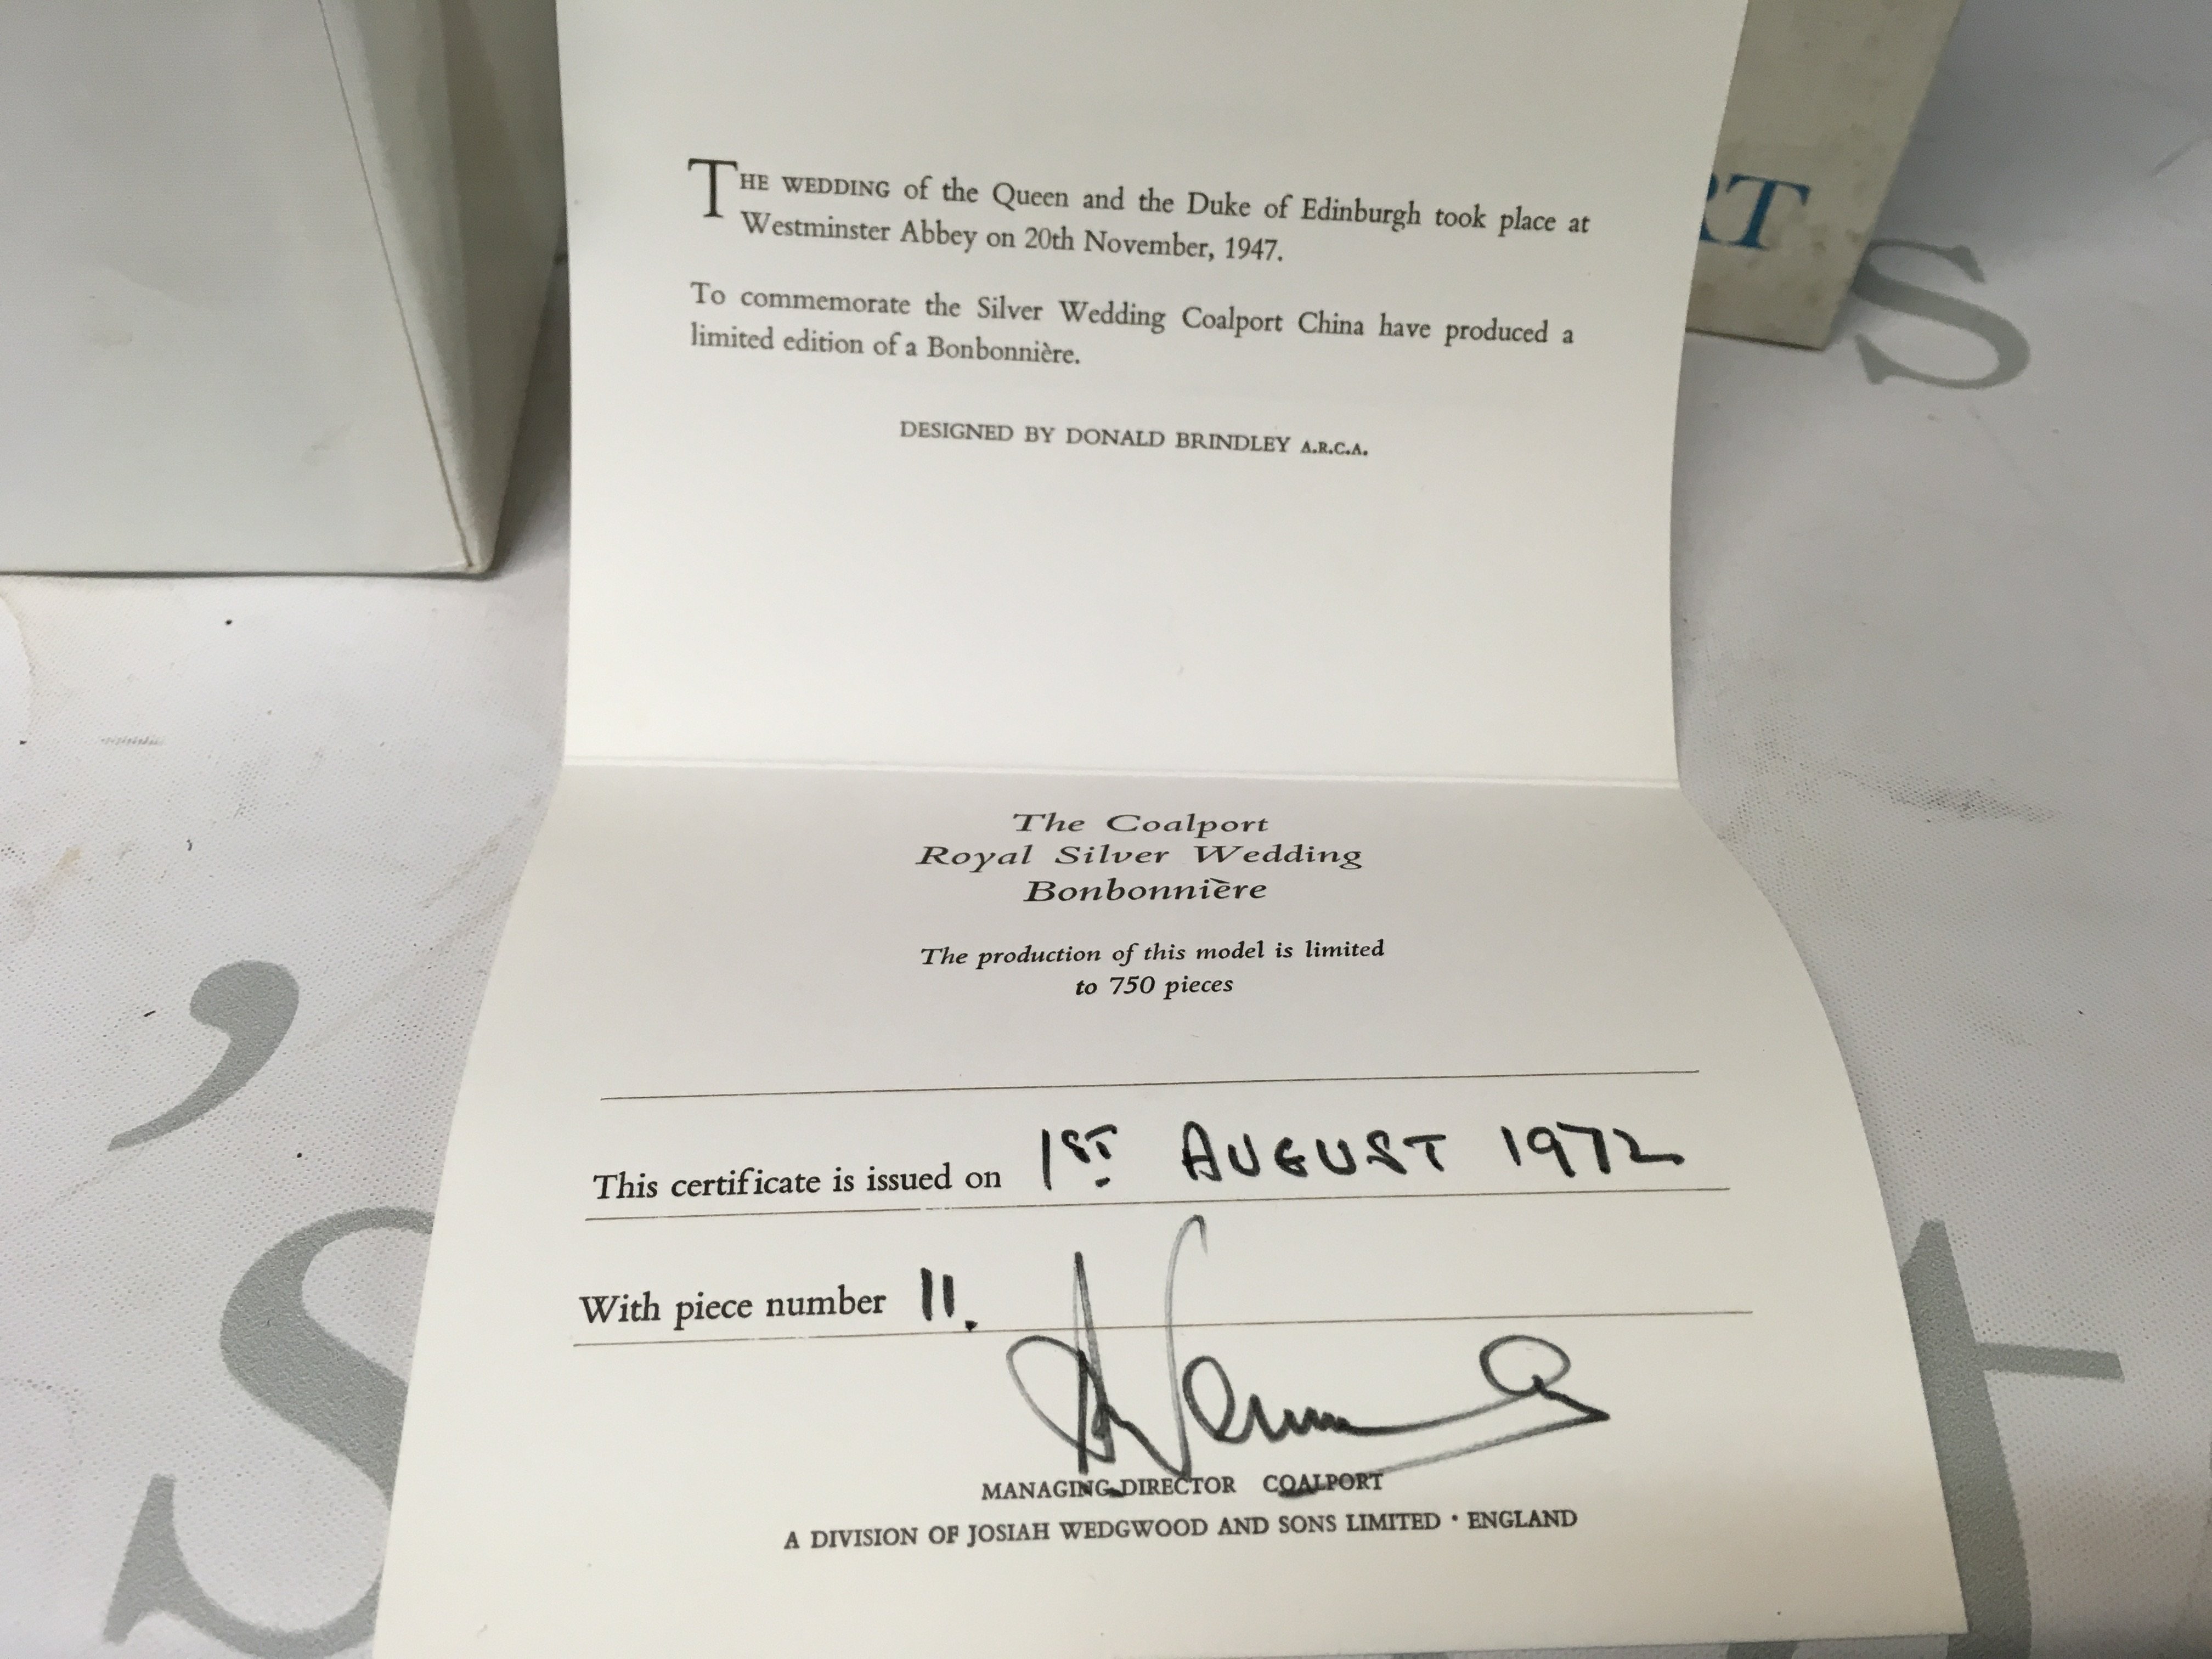 THE WEDDING of the Queen and the Duke of Edinburgh took place at
Westminster Abbey on 20th November, 1947.
To commemorate the Silver Wedding Coalport China have produced a
limited edition of a Bonbonnière.
DESIGNED BY DONALD BRINDLEY A.R.C.A.
The Coalport
Royal Silver Wedding
Bonbonnière
The production of this model is limited
to 750 pieces
This certificate is issued on 1ST AUGUST 1972
With piece number 11.
MANAGING DIRECTOR COALPORT
A DIVISION OF JOSIAH WEDGWOOD AND SONS LIMITED · ENGLAND
RT
s
's
t